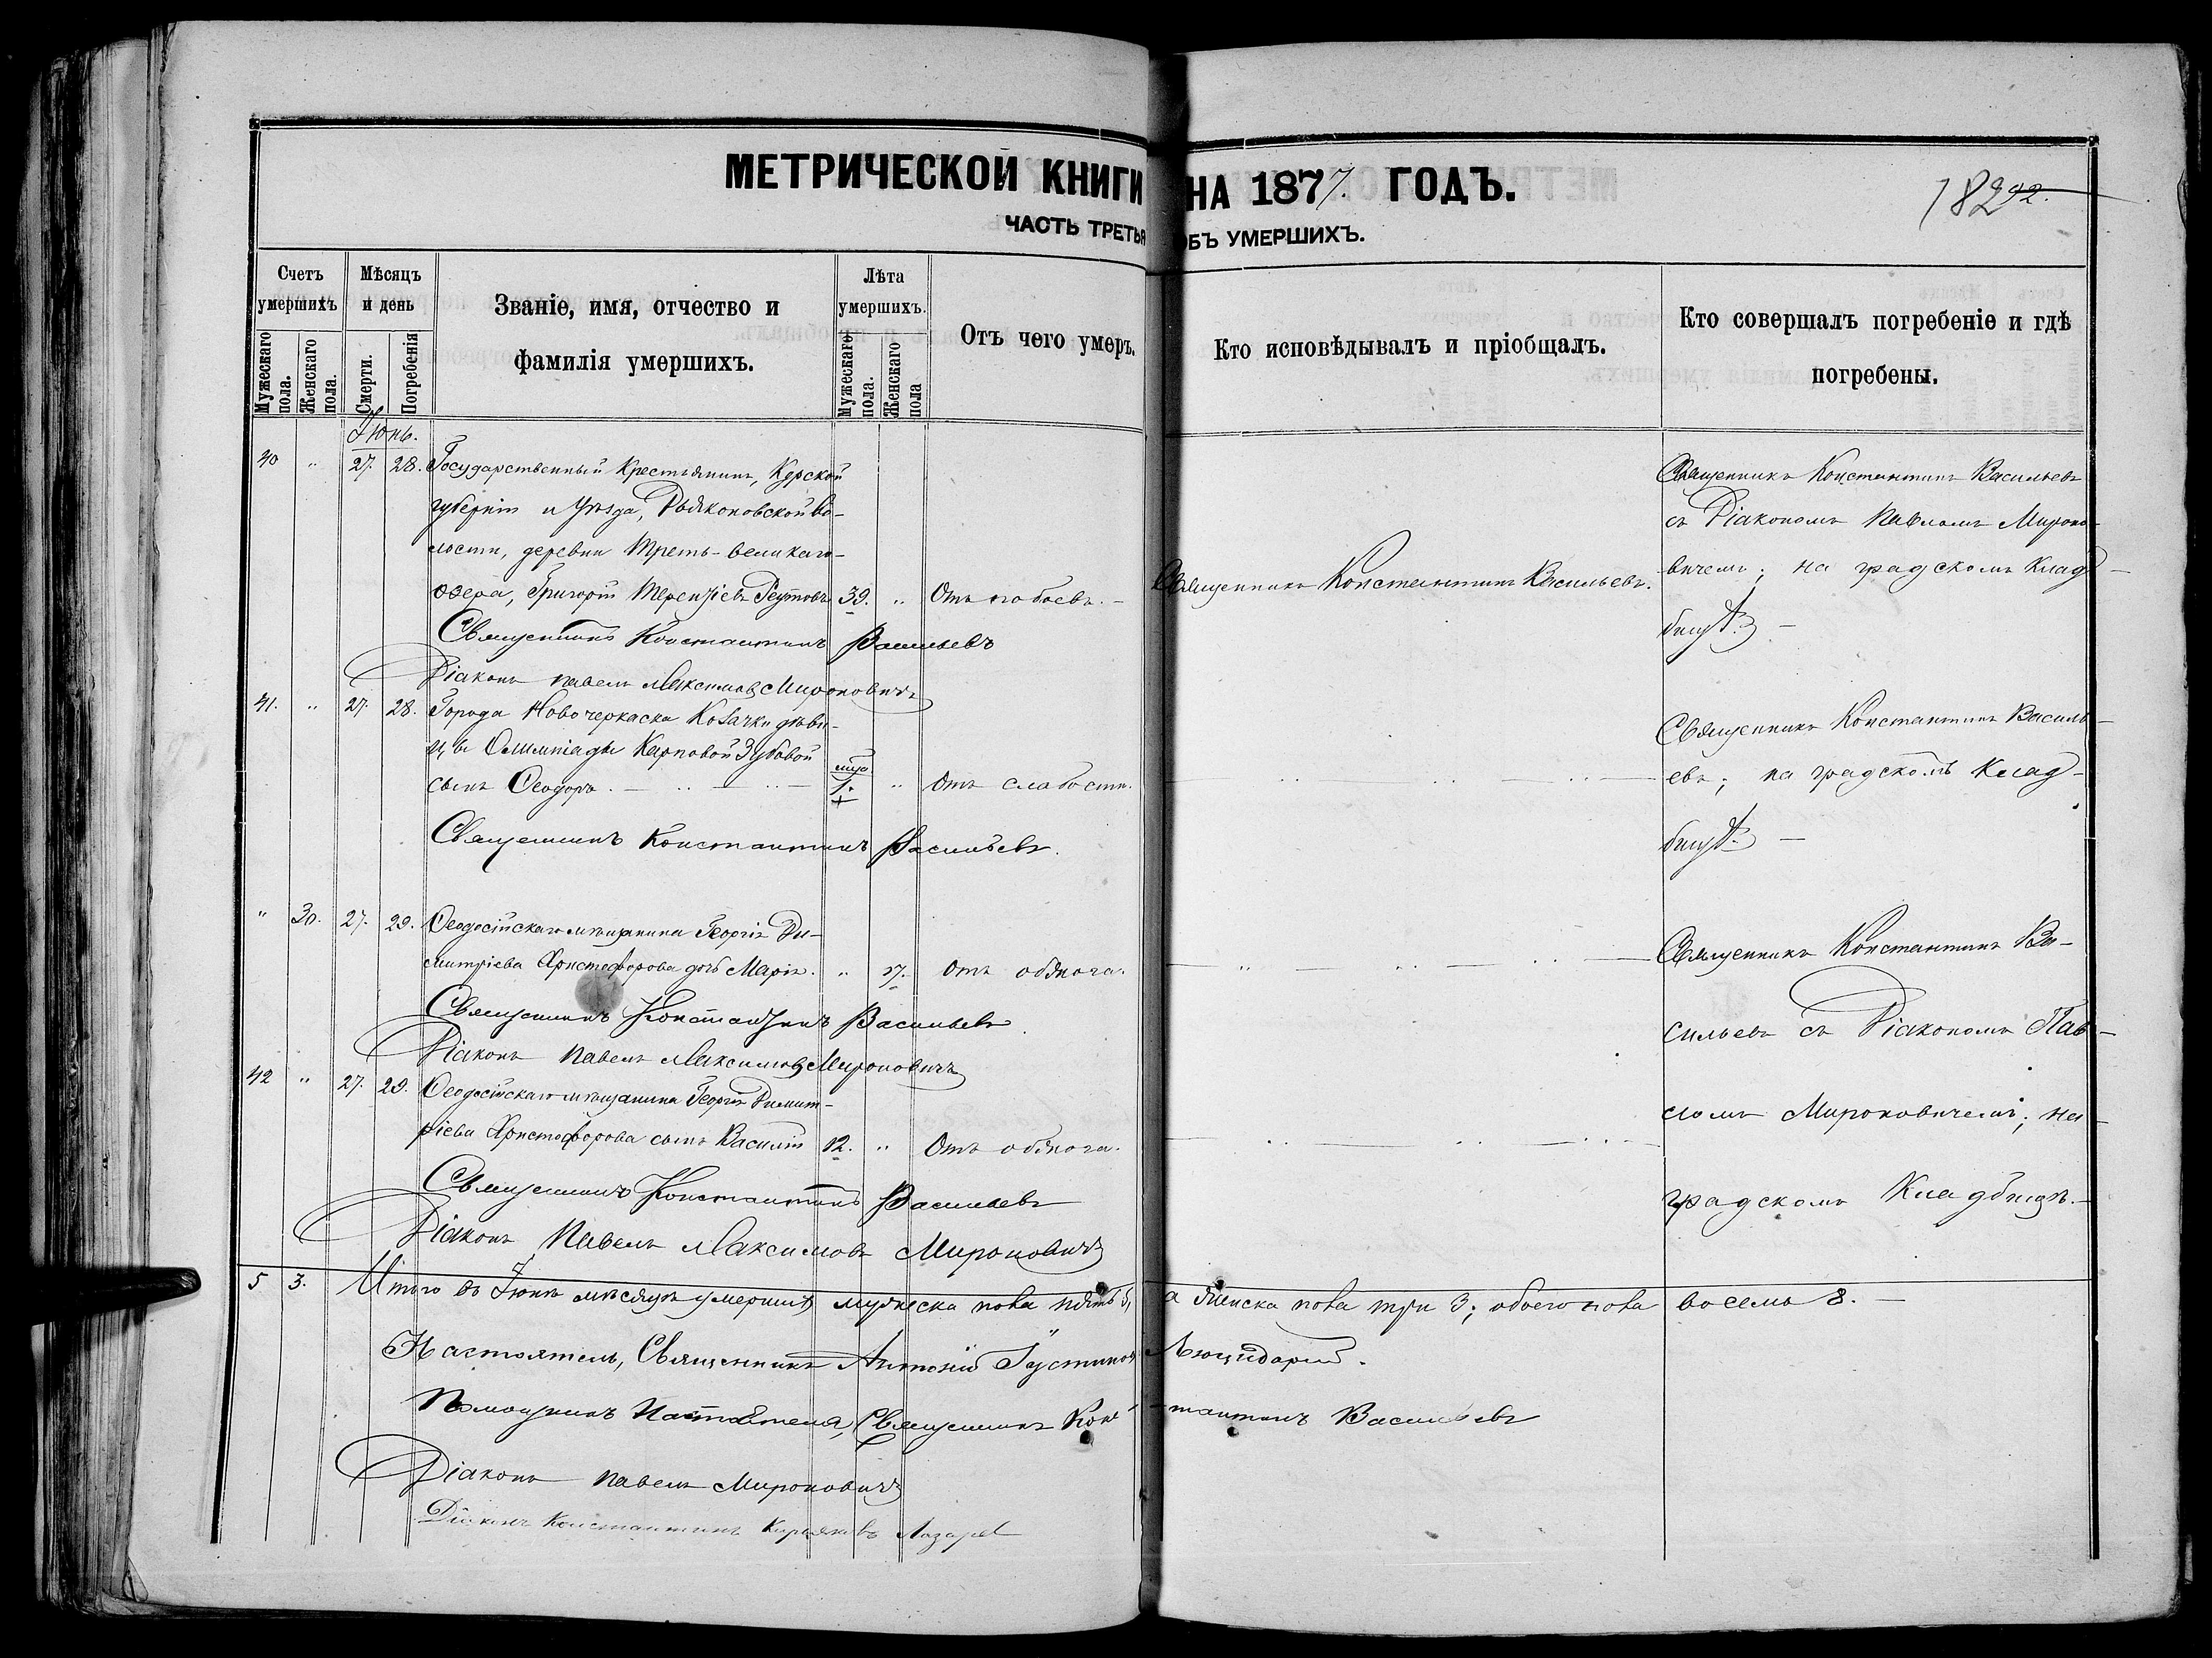 МЕТРИЧЕСКОЙ КНИГИ НА 1877. ГОДЪ.
ЧАСТЬ ТРЕТЬЯ ОБЪ УМЕРШИХЪ.
Счетъ умершихъ
Мужескаго пола.
Женскаго пола.
Мѣсяцъ и день
Смерти.
Погребенія
Званіе, имя, отчество и
фамилія умершихъ.
Лѣта умершихъ.
Мужескаго пола.
Женскаго пола
Отъ чего умеръ.
Кто исповѣдывалъ и пріобщалъ.
Кто совершалъ погребеніе и гдѣ
погребены.
Іюнь.
40 " 27. 28. Государственный Крестьянинъ, Курской
губерніи и Уѣзда, Дьяконовской во-
лости, деревни Треть-великаго-
озера, Григорій Терентіевъ Реутовъ 39. " Отъ побоевъ. — Священникъ Константинъ Васильевъ.
Священникъ Константинъ Васильевъ
съ Діакономъ Павломъ Мироно-
вичемъ; на градскомъ клад-
бищѣ. —
Священникъ Константинъ Васильевъ
Діаконъ Павелъ Максимовъ Мироновичъ
41. " 27. 28. Города Новочеркаска Козачки дѣви-
цы Олимпіады Карповой Зубовой
сынъ Ѳеодоръ. 1. " Отъ слабости.
Священникъ Константинъ Василь-
евъ; на градскомъ клад-
бищѣ. —
Священникъ Константинъ Васильевъ.
" 30. 27. 29. Ѳеодосійскаго мѣщанина Георгія Ди-
митріева Христофорова дочь Марія. " 17. Отъ обжога.
Священникъ Константинъ Ва-
сильевъ съ Діакономъ Пав-
ломъ Мироновичемъ; на
градскомъ Кладбищѣ. —
Священникъ Константинъ Васильевъ
Діаконъ Павелъ Максимовъ Мироновичъ
42 " 27. 29. Ѳеодосійскаго мѣщанина Георгія Димит-
ріева Христофорова сынъ Василій 12. " Отъ обжога.
Священникъ Константинъ Васильевъ
Діаконъ Павелъ Максимовъ Мироновичъ
5 3. Итого въ Іюнѣ мѣсяцѣ умершихъ мужеска пола пять 5, а женска пола три 3; обоего пола восемь 8. —
Настоятель, Священникъ Антоній Іустиновъ
Помощникъ Настоятеля, Священникъ Константинъ Васильевъ
Діаконъ Павелъ Мироновичъ
Діаконъ Константинъ Лазарев